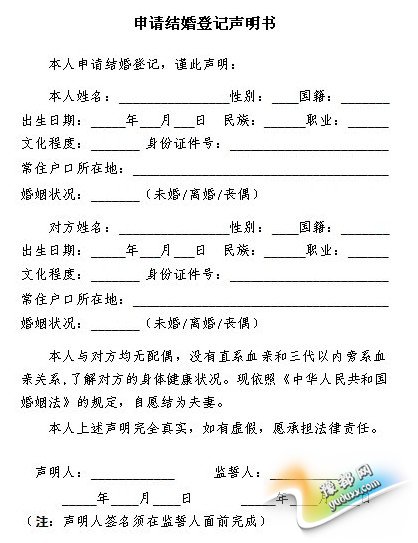 申请结婚登记声明书
本人申请结婚登记，谨此声明：
本人姓名：____________性别：___国籍：_____
出生日期：____年___月___日 民族：_____职业：_____
文化程度：_____ 身份证件号：________________
常住户口所在地：__________________________
婚姻状况：_____（未婚/离婚/丧偶）
对方姓名：____________性别：___国籍：_____
出生日期：____年___月___日 民族：_____职业：_____
文化程度：_____ 身份证件号：________________
常住户口所在地：__________________________
婚姻状况：_____（未婚/离婚/丧偶）
本人与对方均无配偶，没有直系血亲和三代以内旁系血
亲关系,了解对方的身体健康状况。现依照《中华人民共和国
婚姻法》的规定，自愿结为夫妻。
本人上述声明完全真实，如有虚假，愿承担法律责任。
声明人：________ 监誓人：________
____年____月____日 ____年____月____日
（注：声明人签名须在监誓人面前完成）
豫都网
yuduxx.com